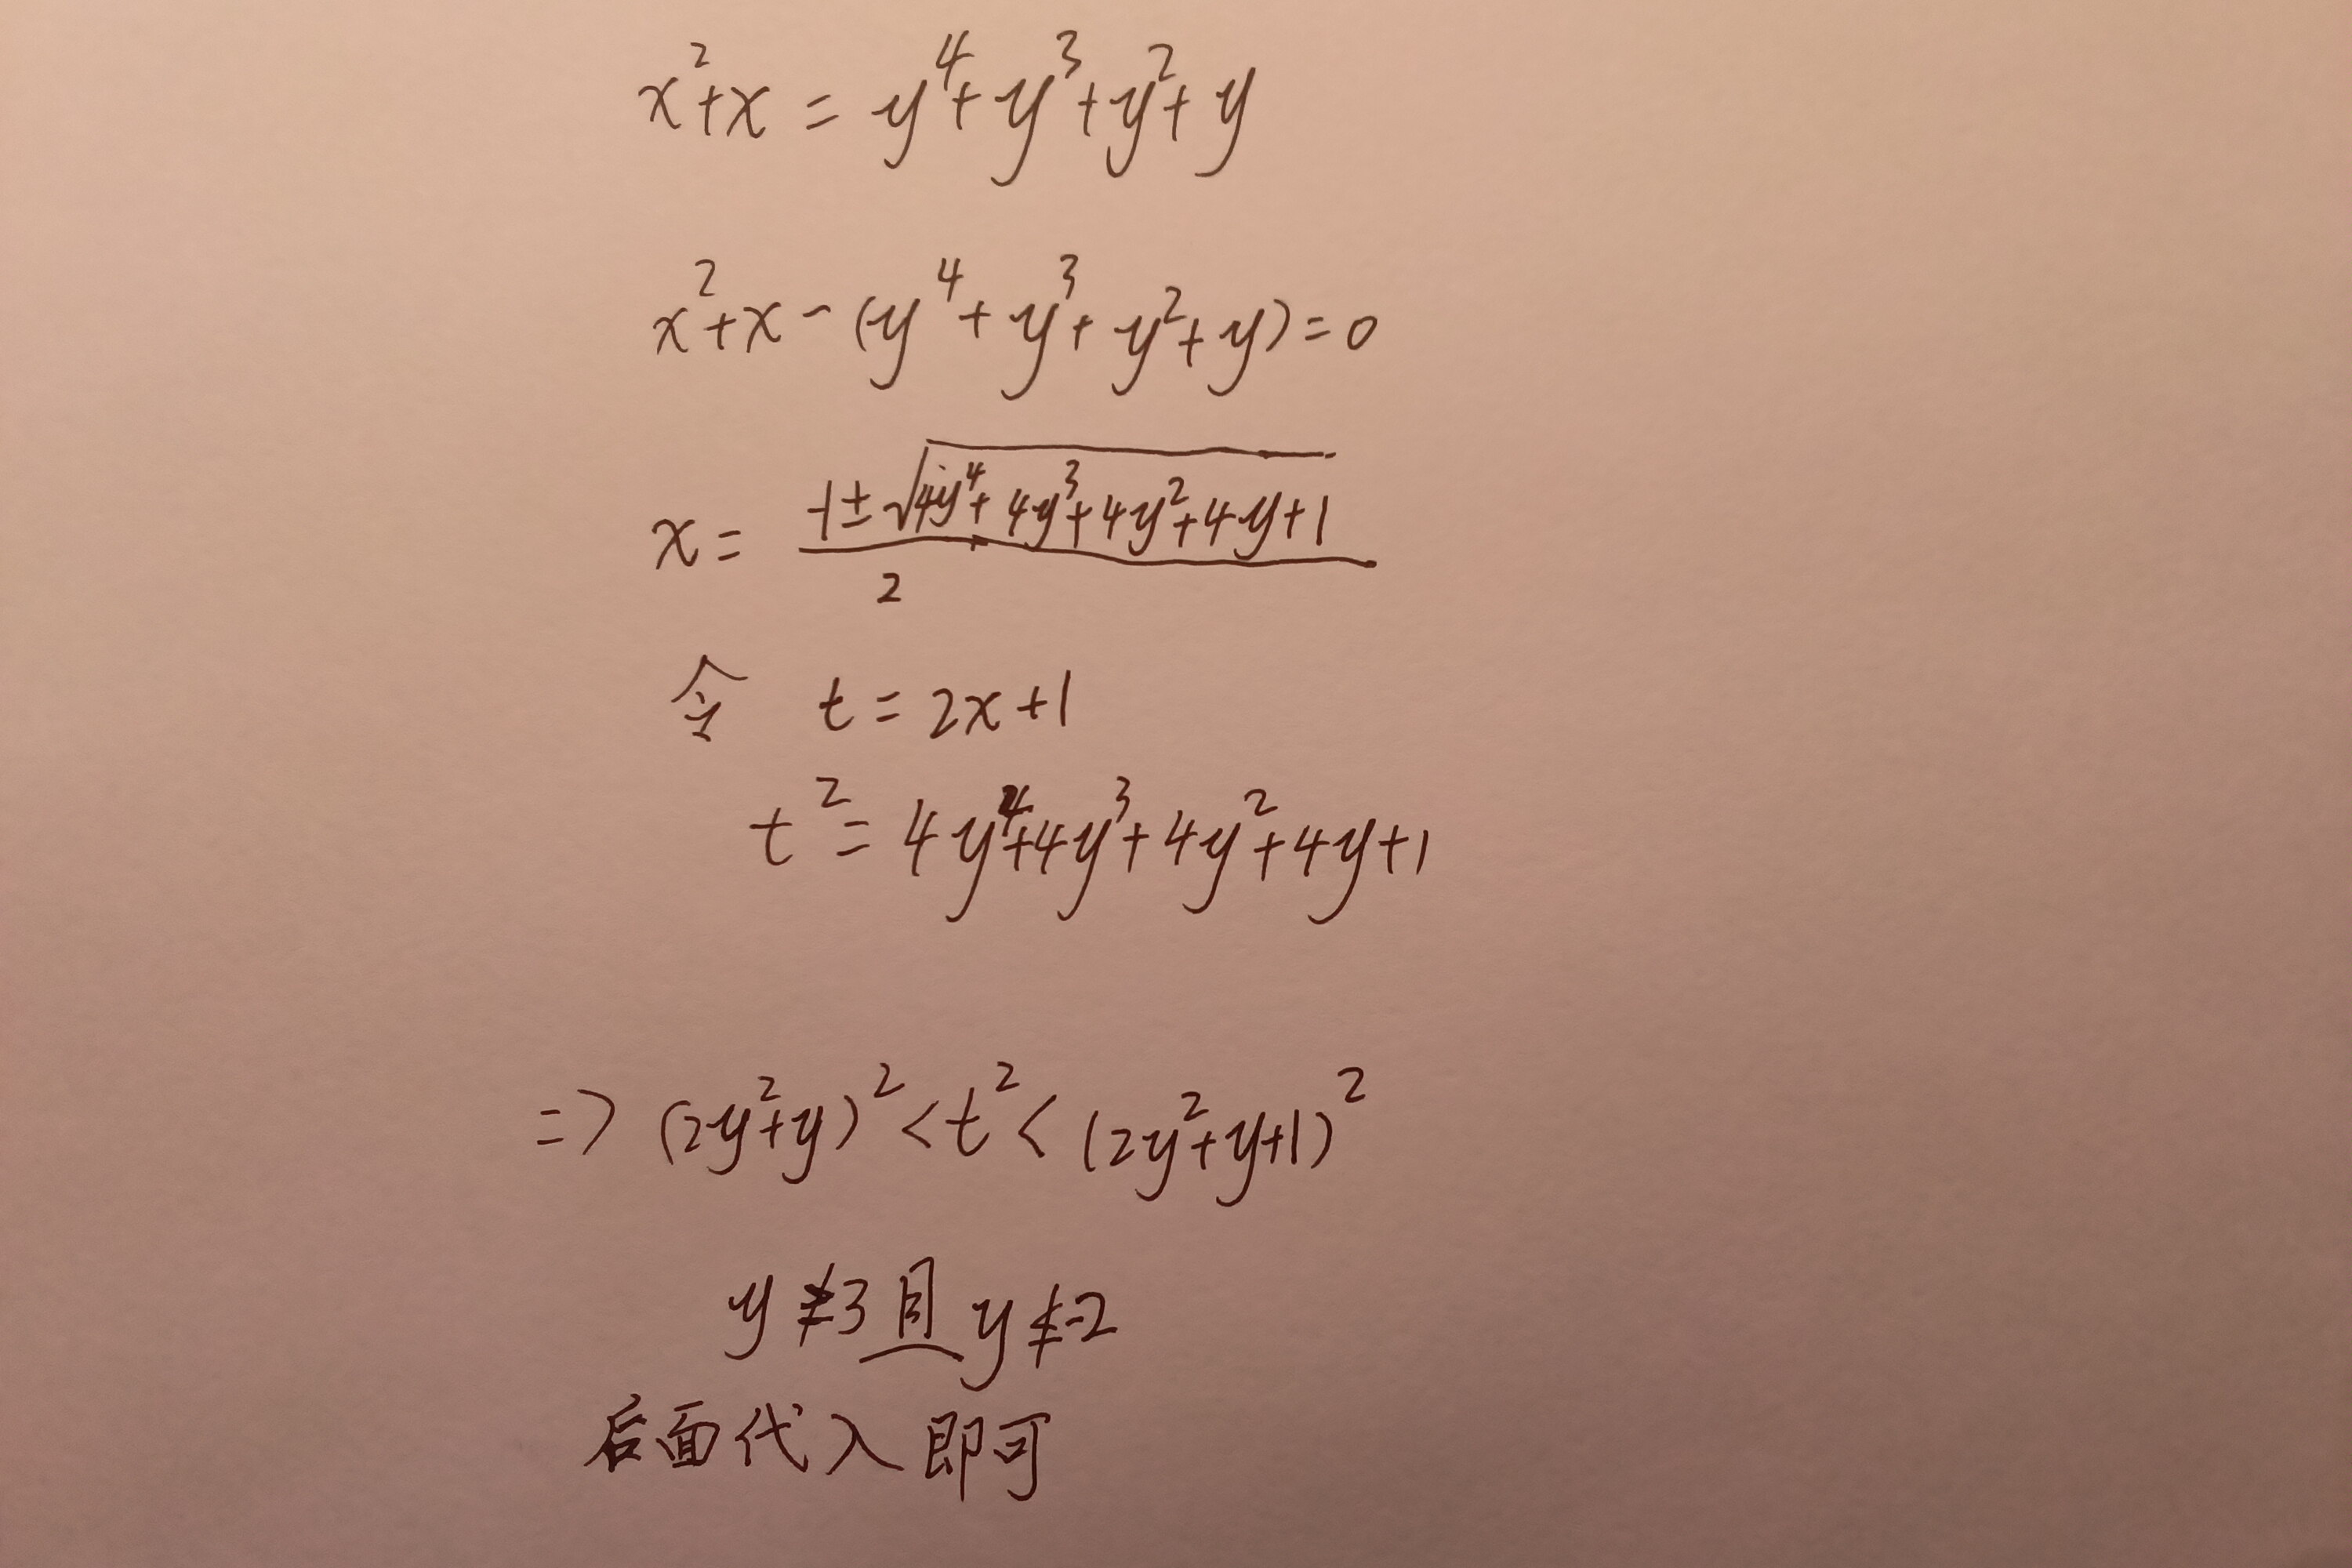 x²+x = y⁴+y³+y²+y
x²+x-(y⁴+y³+y²+y)=0
x = (-1±√(4y⁴+4y³+4y²+4y+1))/2
令 t = 2x+1
t² = 4y⁴+4y³+4y²+4y+1
=> (2y²+y)² < t² < (2y²+y+1)²
y≠3且y≠-2
后面代入即可